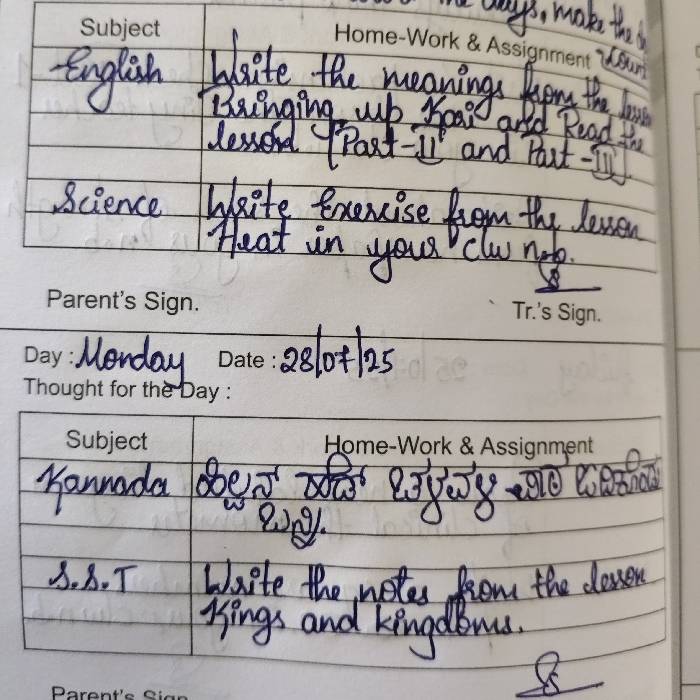 the days, make the
Subject Home-Work & Assignment count
English Write the meanings from the lesson
Bringing up Kari and Read the
lesson [Part-II and Part-III].
Science Write Exercise from the lesson
Heat in your clw n.b.
Parent's Sign. Tr.'s Sign.
Day : Monday Date : 28/07/25
Thought for the Day :
Subject Home-Work & Assignment
Kannada
S.S.T Write the notes from the lesson
Kings and kingdoms.
Parent's Sign